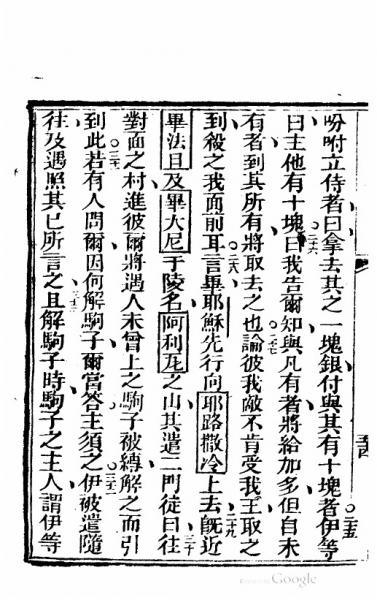 吩咐立侍者曰拿去其之一塊銀付與其有十塊者伊等
曰主他有十塊曰我告爾知與凡有者將給加多但自未
有者到其所有將取去之也論彼我敵不肯受我王取之
到役之我面前耳言畢耶穌先行向耶路撒冷上去旣近
畢法且及畢大尼于陵名阿利瓦之山其遣二門徒曰往
對面之村進彼爾將遇人未曾上之駒子被縛解之而引
到此若有人問爾因何解駒子爾當答主須之伊被遣隨
往及遇照其已所言之且解駒子時駒子之主人謂伊等
Google